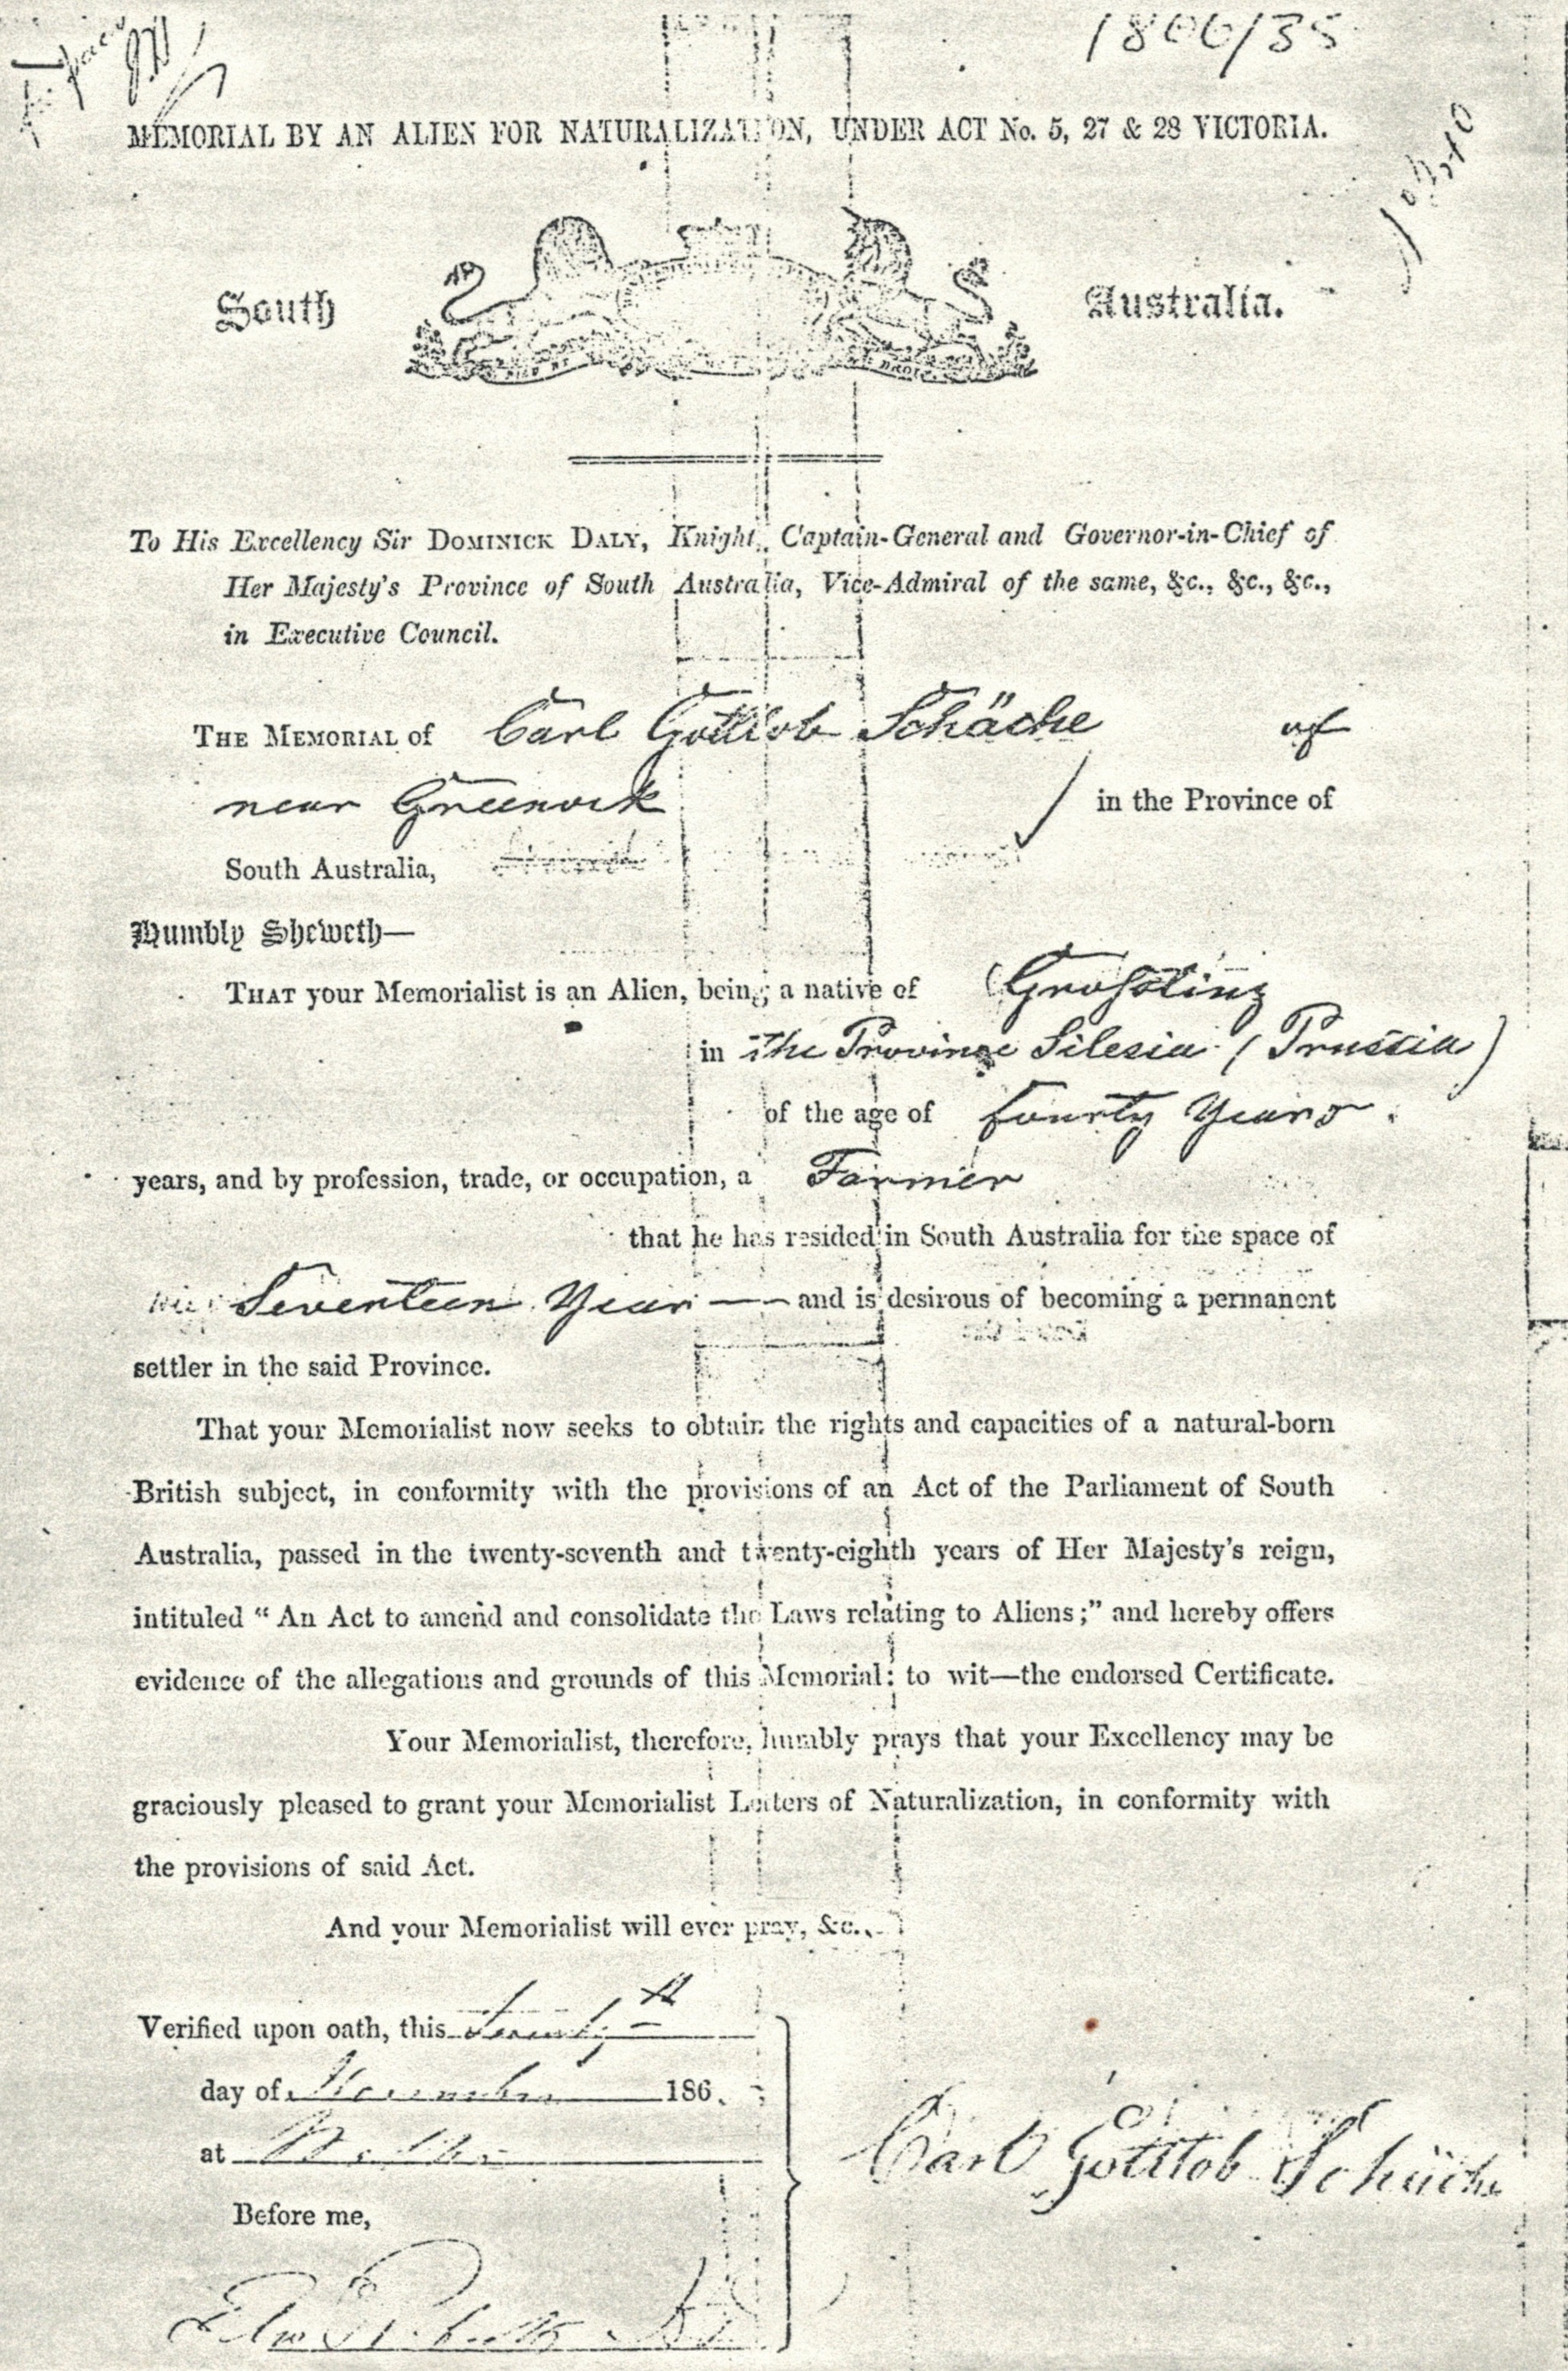 1866/35
MEMORIAL BY AN ALIEN FOR NATURALIZATION, UNDER ACT No. 5, 27 & 28 VICTORIA.
South Australia.
To His Excellency Sir DOMINICK DALY, Knight, Captain-General and Governor-in-Chief of
Her Majesty's Province of South Australia, Vice-Admiral of the same, &c., &c., &c.,
in Executive Council.
THE MEMORIAL of Carl Gottlob Schäche of
near Greenock in the Province of
South Australia,
Humbly Sheweth—
THAT your Memorialist is an Alien, being a native of
in the Province Silesia (Prussia)
of the age of fourty Years.
years, and by profession, trade, or occupation, a Farmer
that he has resided in South Australia for the space of
Seventeen Year — and is desirous of becoming a permanent
settler in the said Province.
That your Memorialist now seeks to obtain the rights and capacities of a natural-born
British subject, in conformity with the provisions of an Act of the Parliament of South
Australia, passed in the twenty-seventh and twenty-eighth years of Her Majesty's reign,
intituled "An Act to amend and consolidate the Laws relating to Aliens;" and hereby offers
evidence of the allegations and grounds of this Memorial: to wit—the endorsed Certificate.
Your Memorialist, therefore, humbly prays that your Excellency may be
graciously pleased to grant your Memorialist Letters of Naturalization, in conformity with
the provisions of said Act.
And your Memorialist will ever pray, &c.,
Verified upon oath, this
day of November 186
at
Before me,
Carl Gottlob Schäche